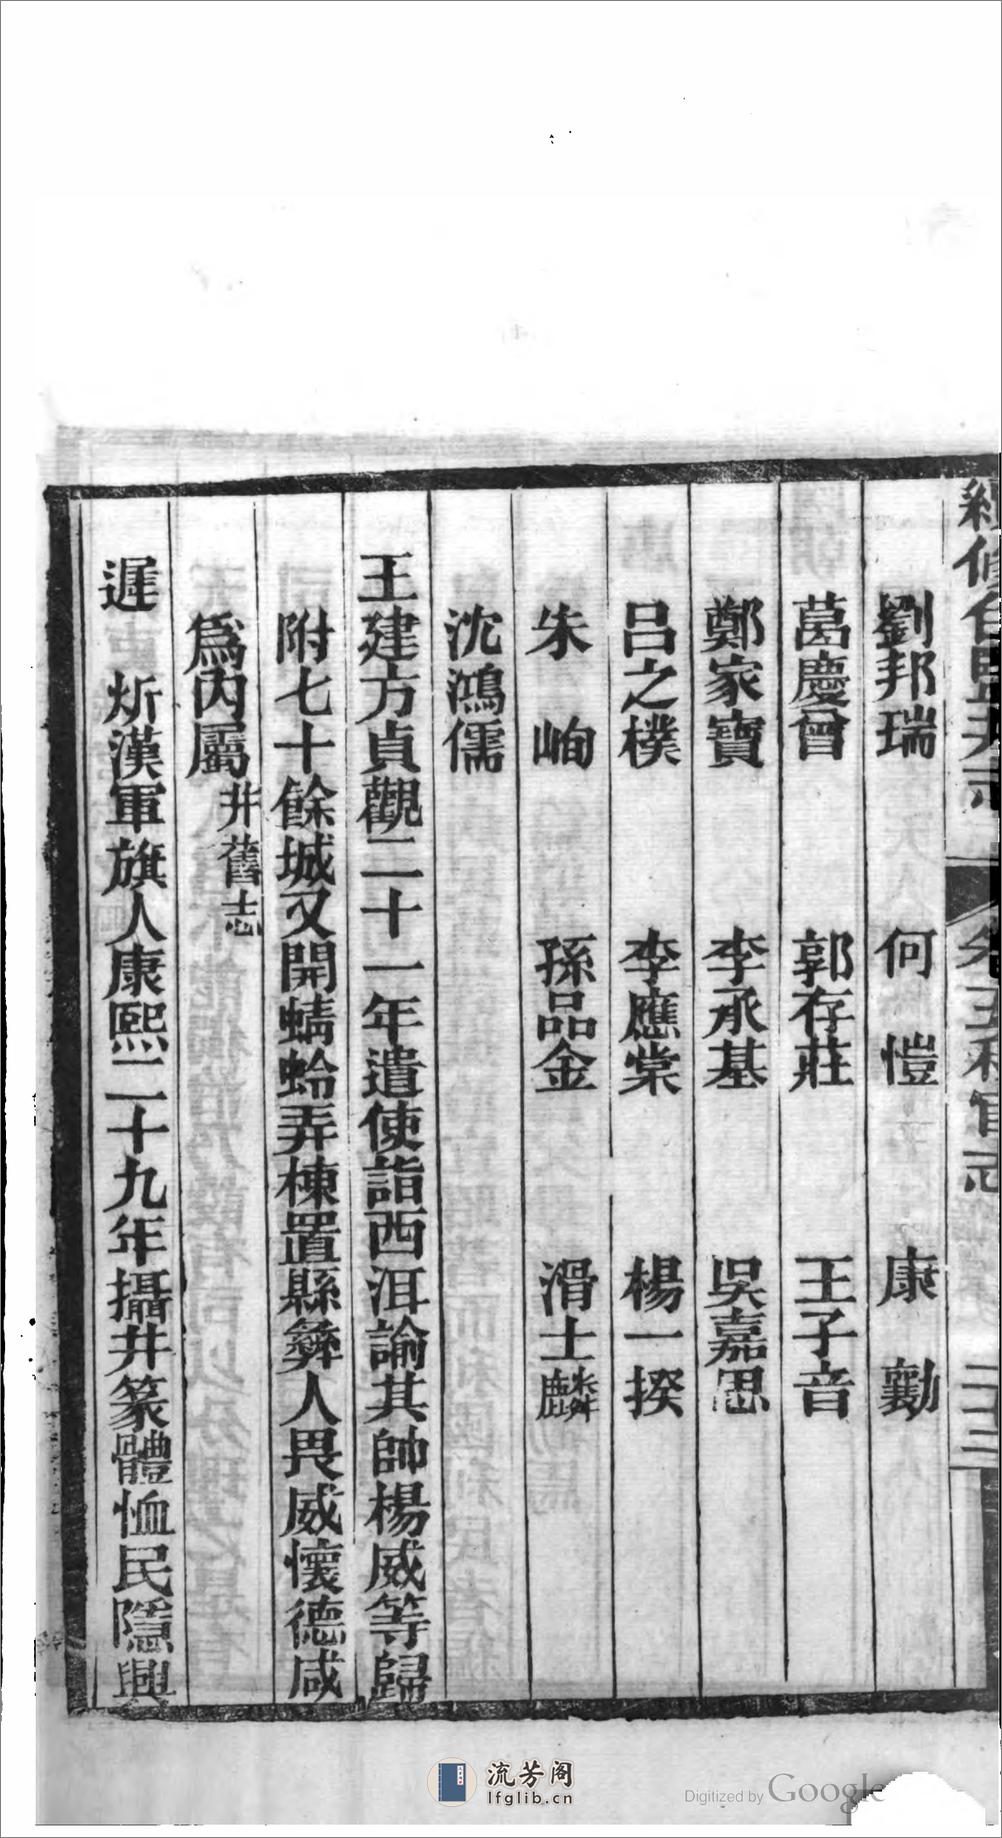 續修白鹽井志 卷五秩官志 二十三
劉邦瑞 何愷 康勷
葛慶曾 郭存莊 王子音
鄭家寶 李承基 吳嘉思
呂之樸 李應棠 楊一揆
朱峋 孫品金 滑士麟
沈鴻儒
王建方貞觀二十一年遣使詣西洱諭其帥楊威等歸
附七十餘城又開蜻蛉弄棟置縣彝人畏威懷德咸
爲內屬井舊志
遲 炘漢軍旗人康熙二十九年攝井篆體恤民隱興
流芳阁
lfglib.cn
Digitized by Google